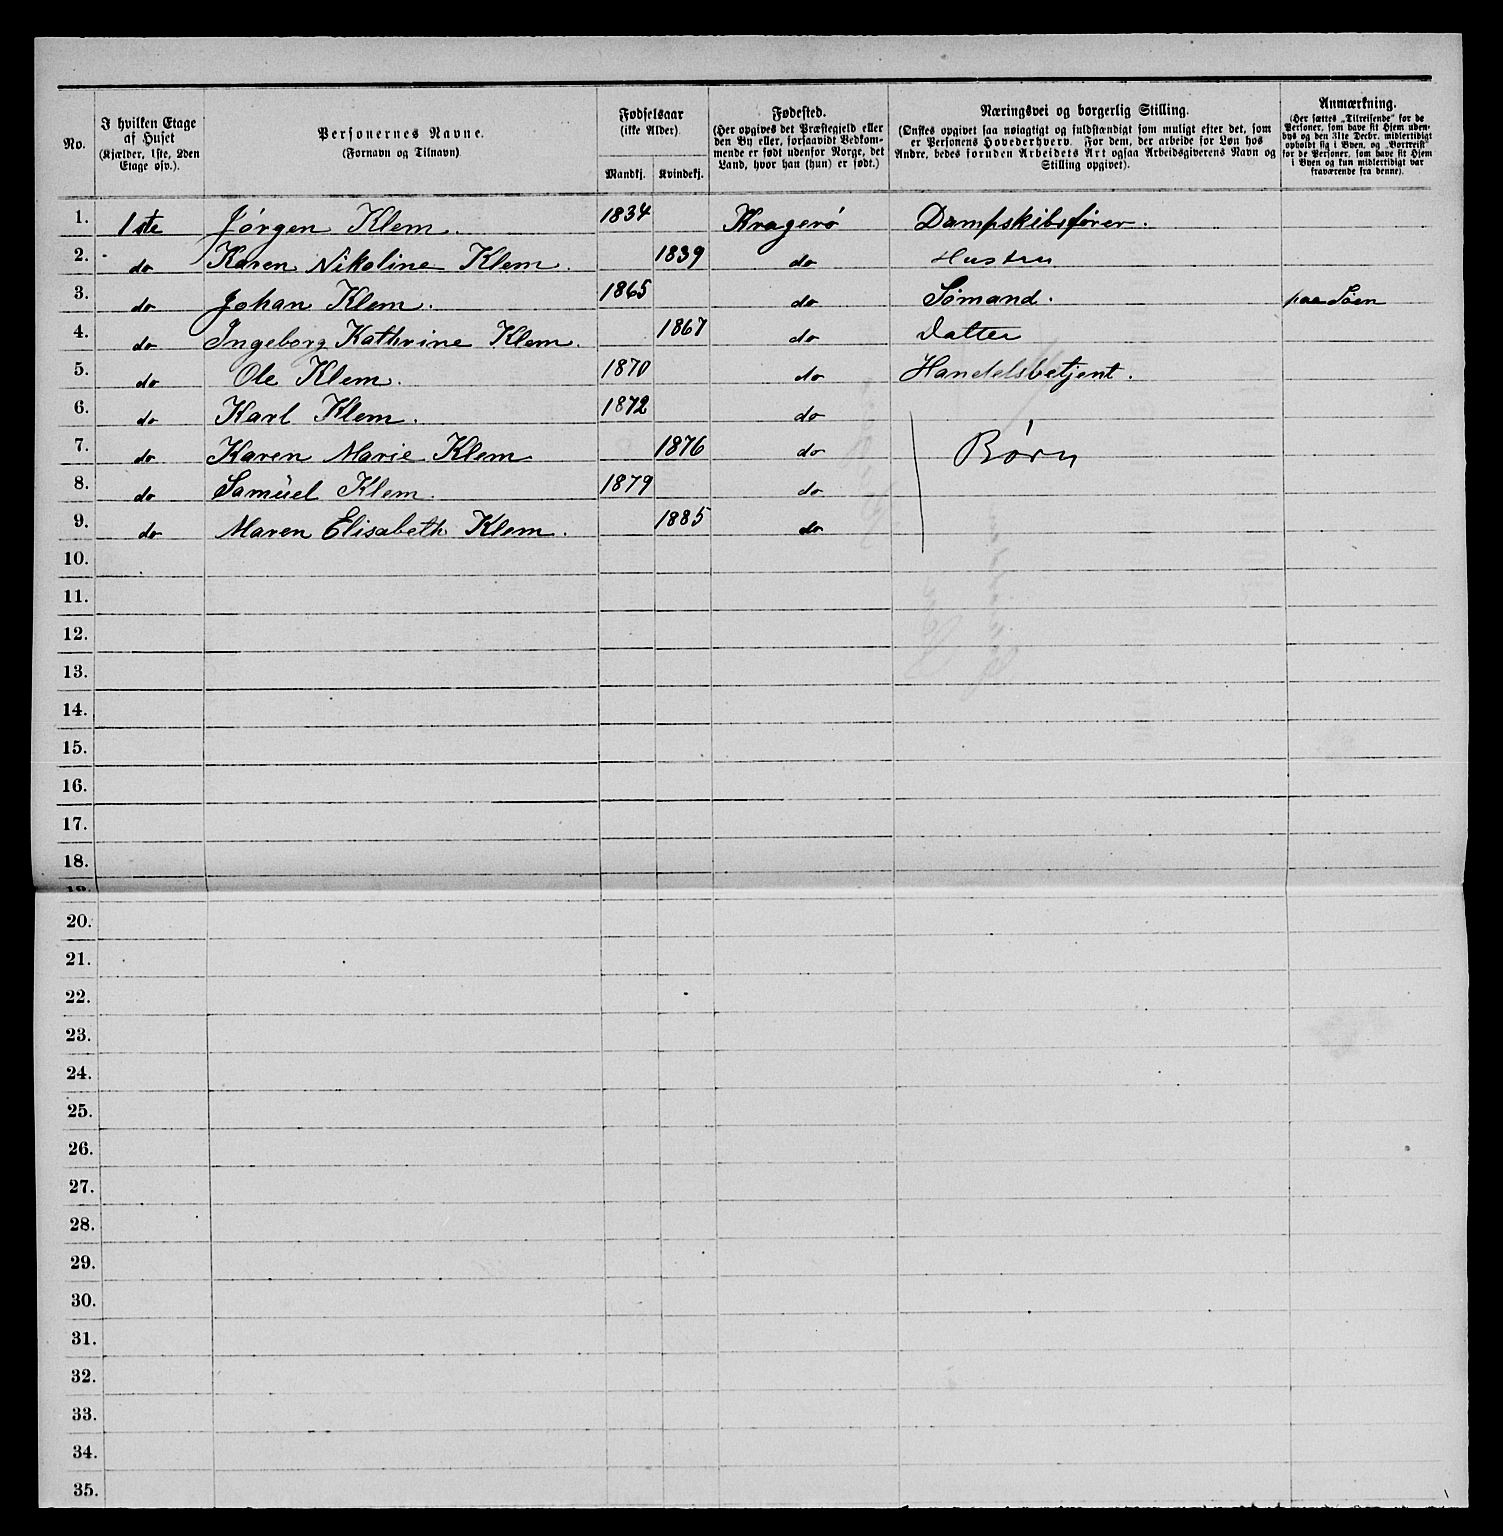 No.
I hvilken Etage af Huset
(Kjælder, 1ste, 2den Etage osv.).
Personernes Navne.
(Fornavn og Tilnavn)
Fødselsaar
(ikke Alder).
Mandkj. Kvindekj.
Fødested.
(Her opgives det Præstegjeld eller
den By eller, forsaavidt Vedkom-
mende er født udenfor Norge, det
Land, hvor han (hun) er født.)
Næringsvei og borgerlig Stilling.
(Ønskes opgivet saa nøiagtigt og fuldstændigt som muligt efter det, som
er Personens Hovederhverv. For dem, der arbeide for Løn hos
Andre, bedes foruden Arbeidets Art ogsaa Arbeidsgiverens Navn og
Stilling opgivet).
Anmærkning.
(Her sættes „Tilreisende“ for de
Personer, som have sit Hjem uden-
bys og den 31te Decbr. midlertidigt
opholdt sig i Byen, og „Bortreist“
for de Personer, som have sit Hjem
i Byen og kun midlertidigt var
fraværende fra denne).
1. 1ste Jörgen Klem. 1834 Kragerö Dampskibsfører.
2. do Karen Nikoline Klem. 1839 do Hustru
3. do Johan Klem. 1865 do Sømand. paa Söen
4. do Ingeborg Kathrine Klem. 1867 do Datter
5. do Ole Klem. 1870 do Handelsbetjent.
6. do Karl Klem. 1872 do
7. do Karen Marie Klem 1876 do Børn
8. do Samüel Klem. 1879 do
9. do Maren Elisabeth Klem. 1885 do
10.
11.
12.
13.
14.
15.
16.
17.
18.
19.
20.
21.
22.
23.
24.
25.
26.
27.
28.
29.
30.
31.
32.
33.
34.
35.